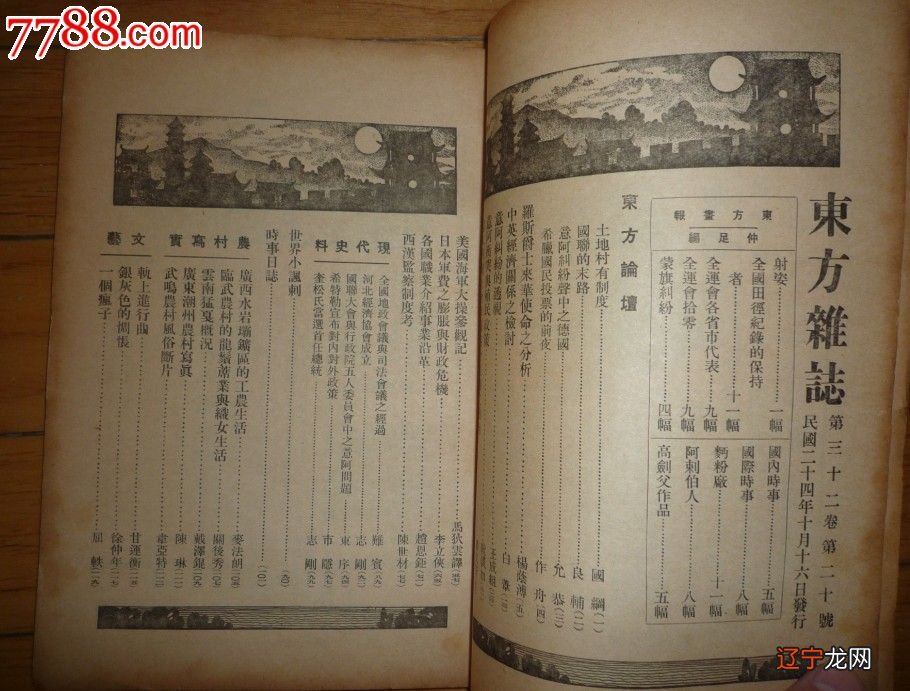 7788.com
東方雜誌
第三十二卷第二十號
民國二十四年十月十六日發行
東方畫報
仲足編
射姿……一幅
全國田徑紀錄的保持
者……十一幅
全運會各省市代表……九幅
全運會拾零……九幅
蒙旗糾紛……四幅
國內時事……五幅
國際時事……八幅
麪粉廠……十一幅
阿剌伯人……八幅
高劍父作品……五幅
東方論壇
土地村有制度……國綱(一)
國聯的末路……良輔(二)
意阿糾紛聲中之德國……允恭(三)
希臘國民投票的前夜……作舟(四)
羅斯爵士來華使命之分析……楊蔭溥(五)
中英經濟關係之檢討……白
意阿糾紛的透視……王成組
美國海軍大操參觀記……馬狄雲譯
日本軍費之膨脹與財政危機……李立俠
各國職業介紹事業沿革……趙恩鉅
西漢監察制度考……陳世材
現代史料
全國地政會議與司法會議之經過……雄賓
河北經濟協會成立……志剛
國聯大會與行政院五人委員會中之意阿問題……東序
希特勒宣布對內對外政策……市隱
奎松氏當選首任總統……志剛
世界小諷刺
時事日誌
農村寫實
廣西水岩壩鑛區的工農生活……麥法朗
臨武農村的龍鬚蓆業與織女生活……關後秀
雲南猛戛概況……戴澤錕
廣東潮州農村寫眞……陳琳
武鳴農村風俗斷片……韋亞特
文藝
軌上進行曲……甘運衡
銀灰色的惆悵……徐仲年
一個瘋子……屈軼
辽宁龙网